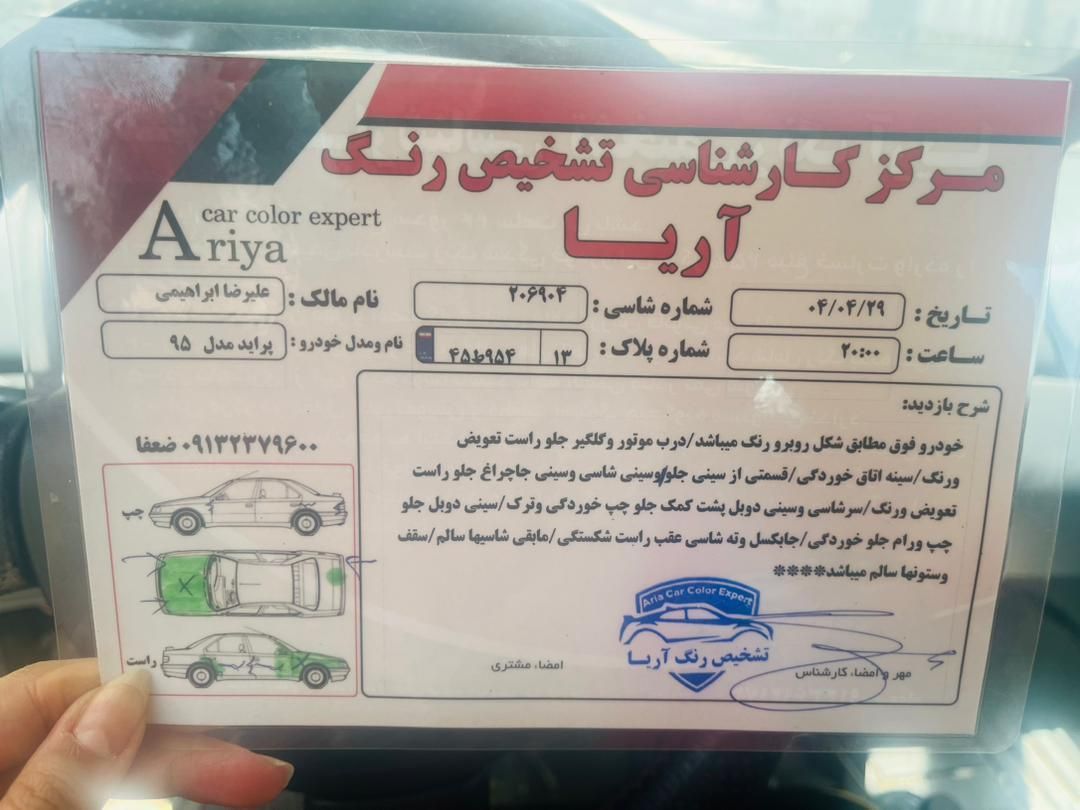 مرکز کارشناسی تشخیص رنگ
آریا
car color expert
Ariya
تاریخ: ۰۴/۰۴/۲۹
شماره شاسی: ۲۰۶۹۰۴
نام مالک: علیرضا ابراهیمی
ساعت: ۲۰:۰۰
شماره پلاک: ۱۳ ۹۵۴ط۴۵
نام ومدل خودرو: پراید مدل ۹۵
شرح بازدید:
خودرو فوق مطابق شکل روبرو رنگ میباشد/درب موتور وگلگیر جلو راست تعویض
ورنگ/سینه اتاق خوردگی/قسمتی از سینی جلو/وسینی شاسی وسینی جاچراغ جلو راست
تعویض ورنگ/سرشاسی وسینی دوبل پشت کمک جلو چپ خوردگی وترک/سینی دوبل جلو
چپ ورام جلو خوردگی/جابکسل وته شاسی عقب راست شکستگی/مابقی شاسیها سالم/سقف
وستونها سالم میباشد****
۰۹۱۳۲۳۷۹۶۰۰ ضعفا
چپ
راست
Aria Car Color Expert
تشخیص رنگ آریا
مهر و امضا، کارشناس
امضا، مشتری